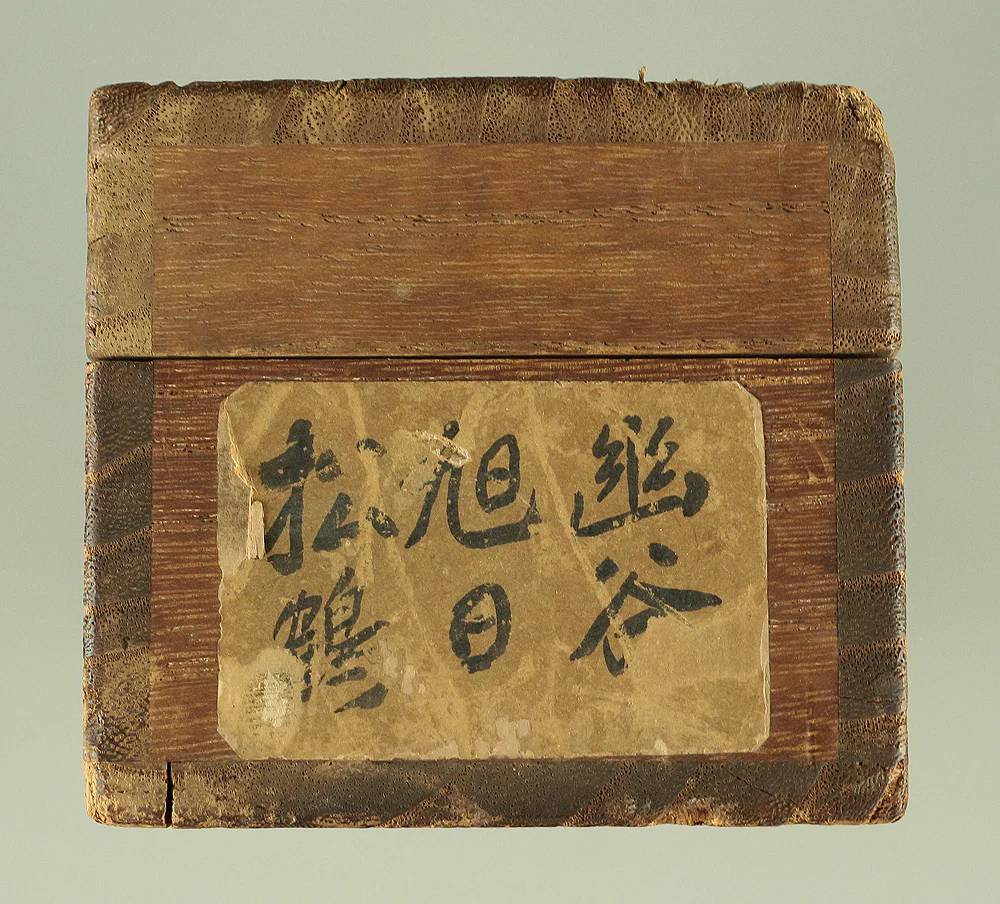 幽谷
旭日
松鶴